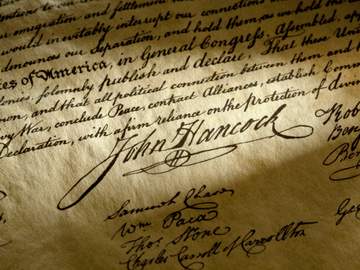 our emigration and settlement
would inevitably interrupt our connections and
denounces our Separation, and hold them, as we hold the
tes of America, in General Congress, Assembled, ap
lonies, solemnly publish and declare, That these Unit
own, and that all political connection between them and
evy War, conclude Peace, contract Alliances, establish Comme
Declaration, with a firm reliance on the protection of divin
John Hancock
Samuel Chase
Wm Paca
Thos Stone
Charles Carroll of Carrollton
Rob
Ben
Ge